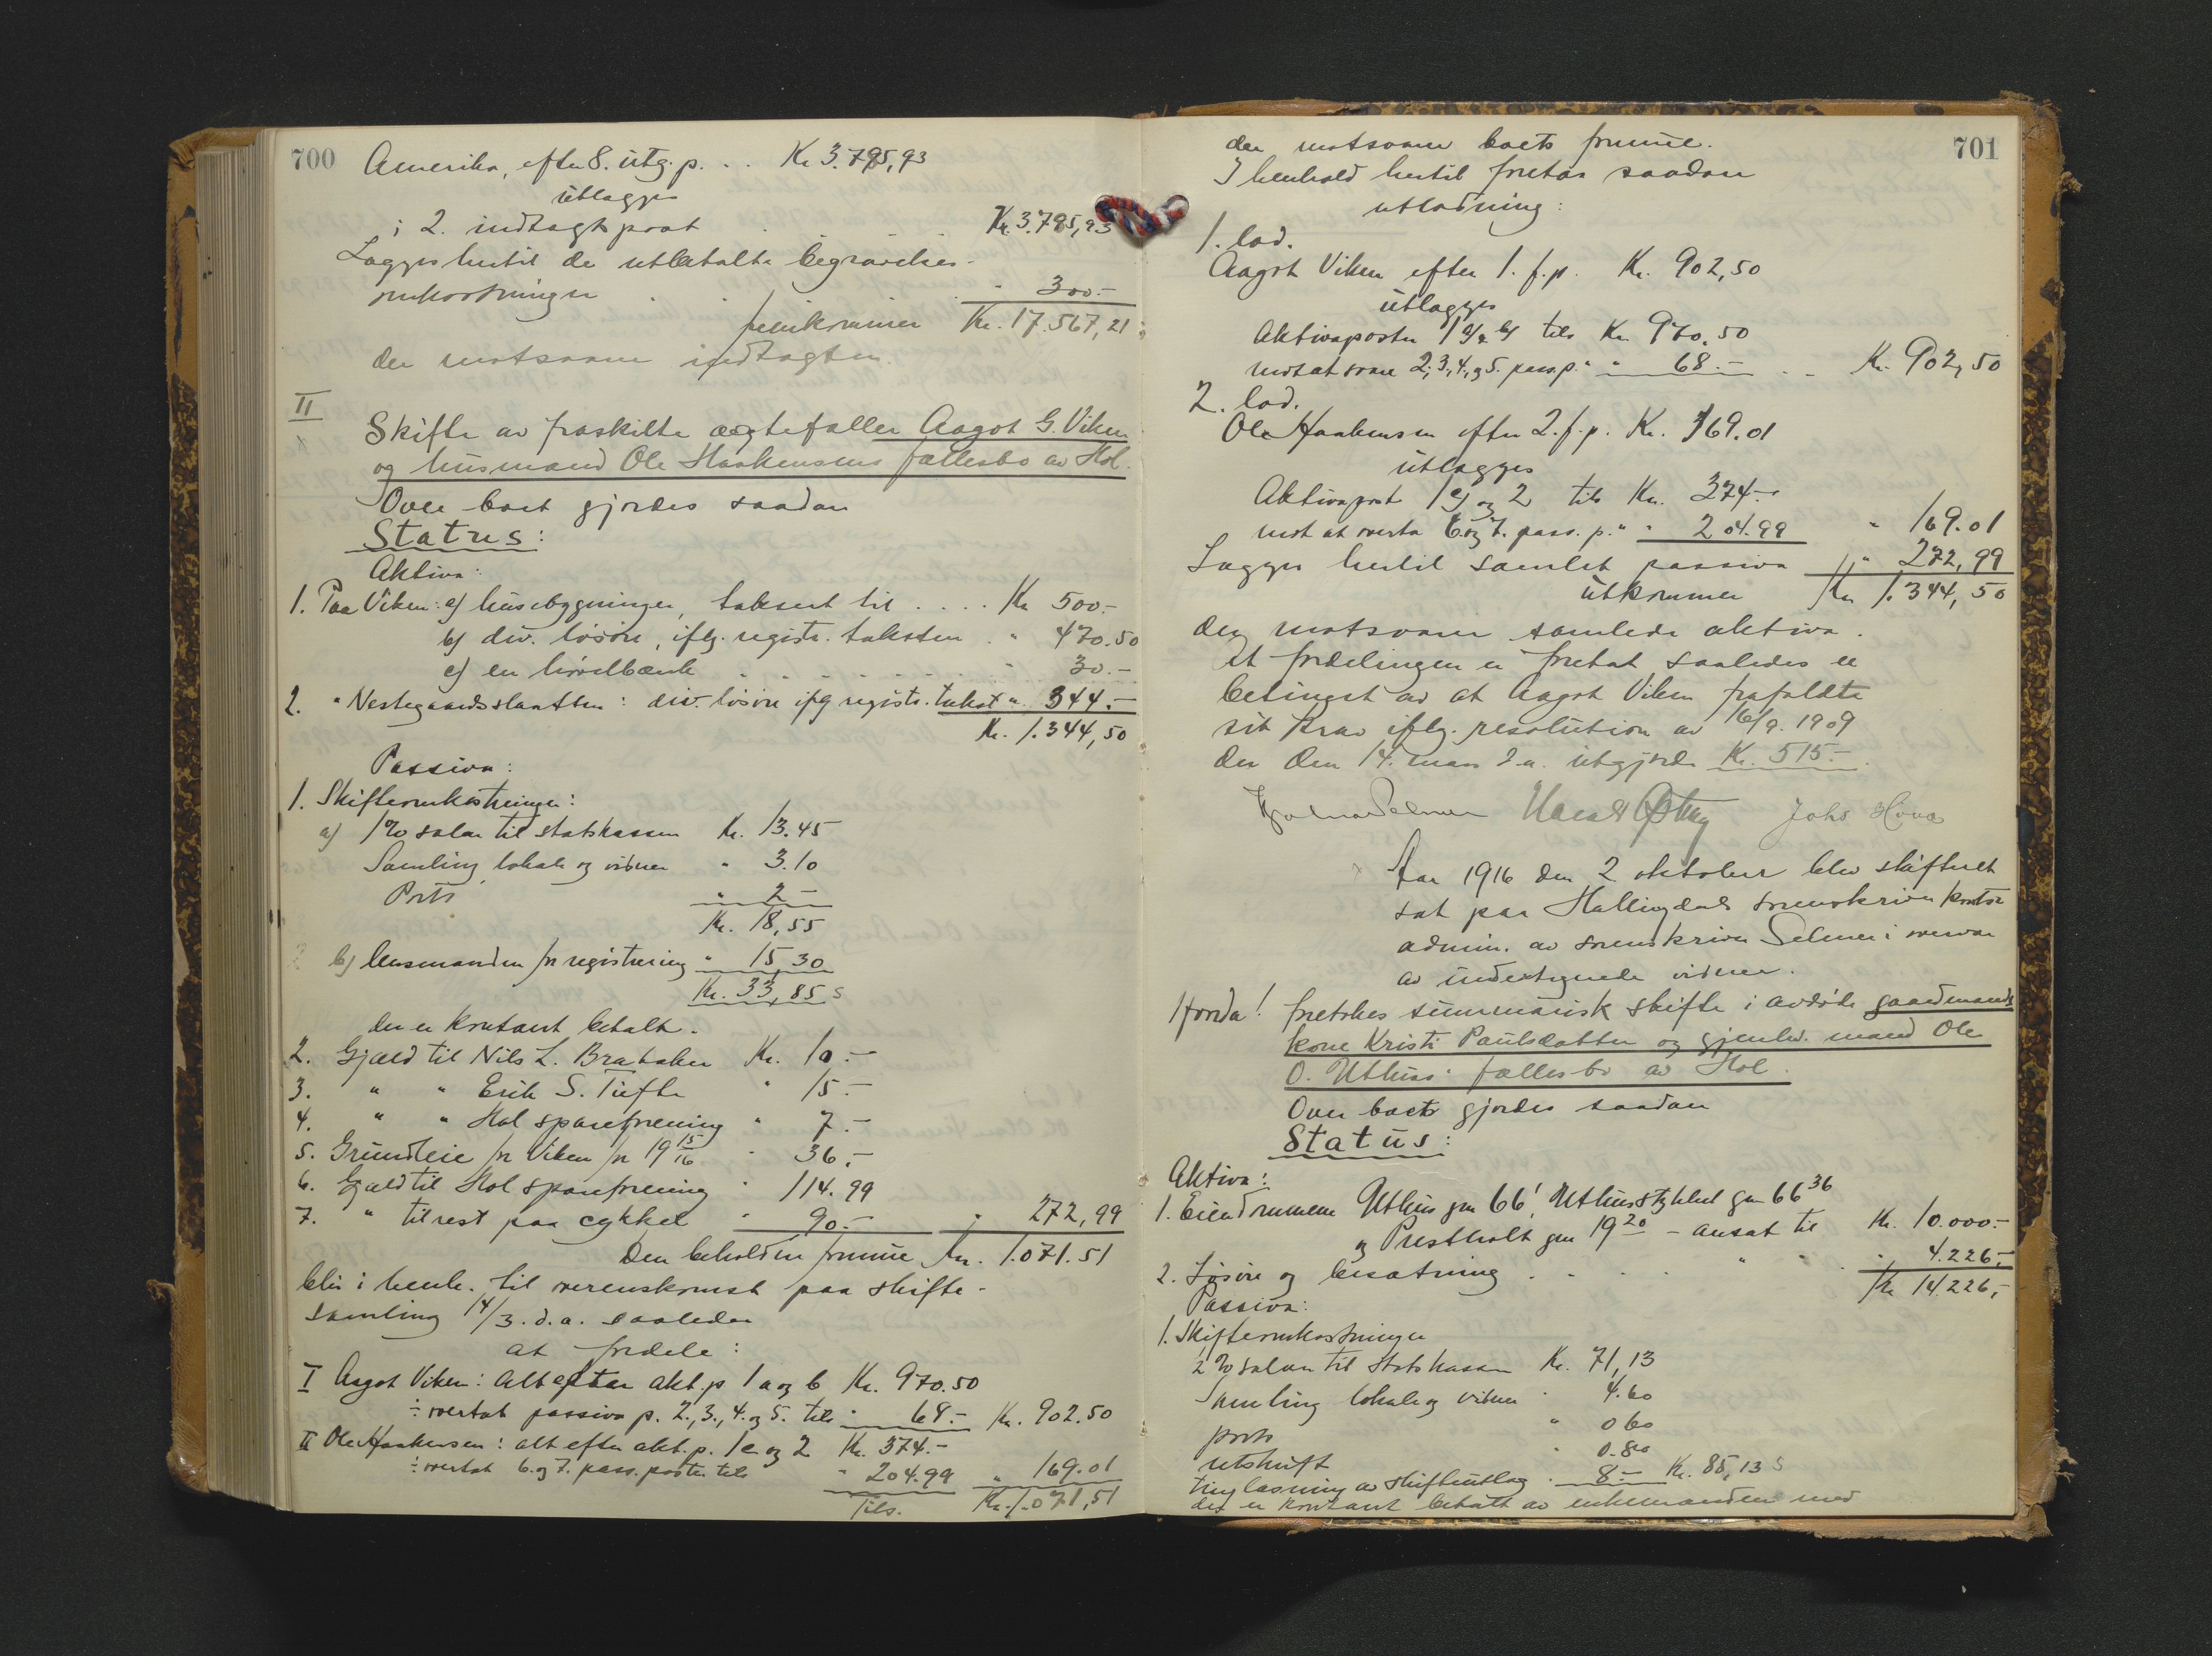 700
Amerika, efter 8. utg. p. . . Kr 3.795,93
utlægges
i 2. indtægtspost . . . Kr. 3.795,93
Lægges hertil de utbetalte begravelses-
omkostninger . . . " 300.-
fremkommer Kr. 17.567,21
der motsvarer indtægten.
II
Skifte av fraskilte ægtefæller Aagot G. Viken
og husmand Ole Haakensens fællesbo av Hol.
Over boet gjordes saadan
Status:
Aktiva:
1. Paa Viken: a) husebygninger, taksert til . . . . Kr 500.-
b) div. løsøre, iflg. registr. taksten . " 470.50
c) en høvelbænk . . . . " 30.-
2. " Nestegaardsslaatten: div. løsøre iflg registr. takst " 344.-
Kr. 1.344,50
Passiva:
1. Skifteomkostninger:
a) 1% salær til statskassen Kr. 13.45
Samling, lokale og vidner " 3.10
Porto " 2 -
Kr. 18,55
b) lensmanden for registrering " 15,30
Kr. 33,85 s
der er kontant betalt.
2. Gjæld til Nils L. Brabakken Kr. 10.-
3. " " Erik S. Tufte " 15.-
4. " " Hol spareforening " 7.-
5. Grundleie for Viken for 19 15/16 " 36.-
6. Gjæld til Hol spareforening " 114.99
7. " til rest paa cykkel " 90.- " 272,99
Den beholdne formue Kr. 1.071.51
blir i henh. til overenskomst paa skifte-
samling 14/3. d.a. saaledes
at fordele:
I Aagot Viken: alt efter akt. p 1 a og b Kr. 970.50
÷ overtat passiva p. 2., 3., 4. og 5. tils " 68.- Kr. 902.50
II Ole Haakensen: alt efter akt. p. 1c og 2 Kr. 374.-
÷ overtat 6. og 7. pass. poster tils " 204.99 " 169.01
Tils. Kr. 1.071,51
701
der motsvarer boets formue.
I henhold hertil foretas saadan
utlodning:
1. lod.
Aagot Viken efter 1. f.p. Kr. 902,50
utlægges
Aktivaposter 1 a) & b) tils Kr. 970.50
mot at svare 2, 3, 4, og 5. pass p. " " 68.- . . Kr. 902,50
2. lod.
Ole Haakensen efter 2. f.p. Kr. 169.01
utlægges
Aktivapost 1 c) og 2 tils Kr. 374.-
mot at overta 6. og 7. pass. p. " " 204.99 " 169.01
Lægges hertil samlet passiva " 272,99
utkommer Kr 1.344,50
der motsvarer samlede aktiva.
At fordelingen er foretat saaledes er
betinget av at Aagot Viken frafaldte
sit krav iflg. resolution av 16/9. 1909
der den 14. mars d.a. utgjorde Kr. 515.-
Aar 1916 den 2 oktober blev skifteret
sat paa Hallingdals sorenskriver kontor
admin. av sorenskriver Selmer i overvær
av undertegnede vidner.
foretokes summarisk skifte i avdøde gaardmands
kone Kristi Paulsdatter og gjenlev. mand Ole
O. Uthus' fællesbo av Hol.
Over boet gjordes saadan
Status:
Aktiva:
1. Eiendommene Uthus gn 66 1, Uthusstykket gn 66 36
og Prestholt gn 19 20 - ansat til Kr. 10.000.-
2. Løsøre og besætning . . . " " " 4.226,-
Kr 14.226,-
Passiva:
1. Skifteomkostninger
½ % salær til Statskassen Kr. 71,13
Samling lokale og vidner " 4.60
porto " 0 60
utskrift " 0.80
tinglæsning av skifteutlæg " 8 - Kr. 85,13 s
der er kontant betalt av enkemanden med